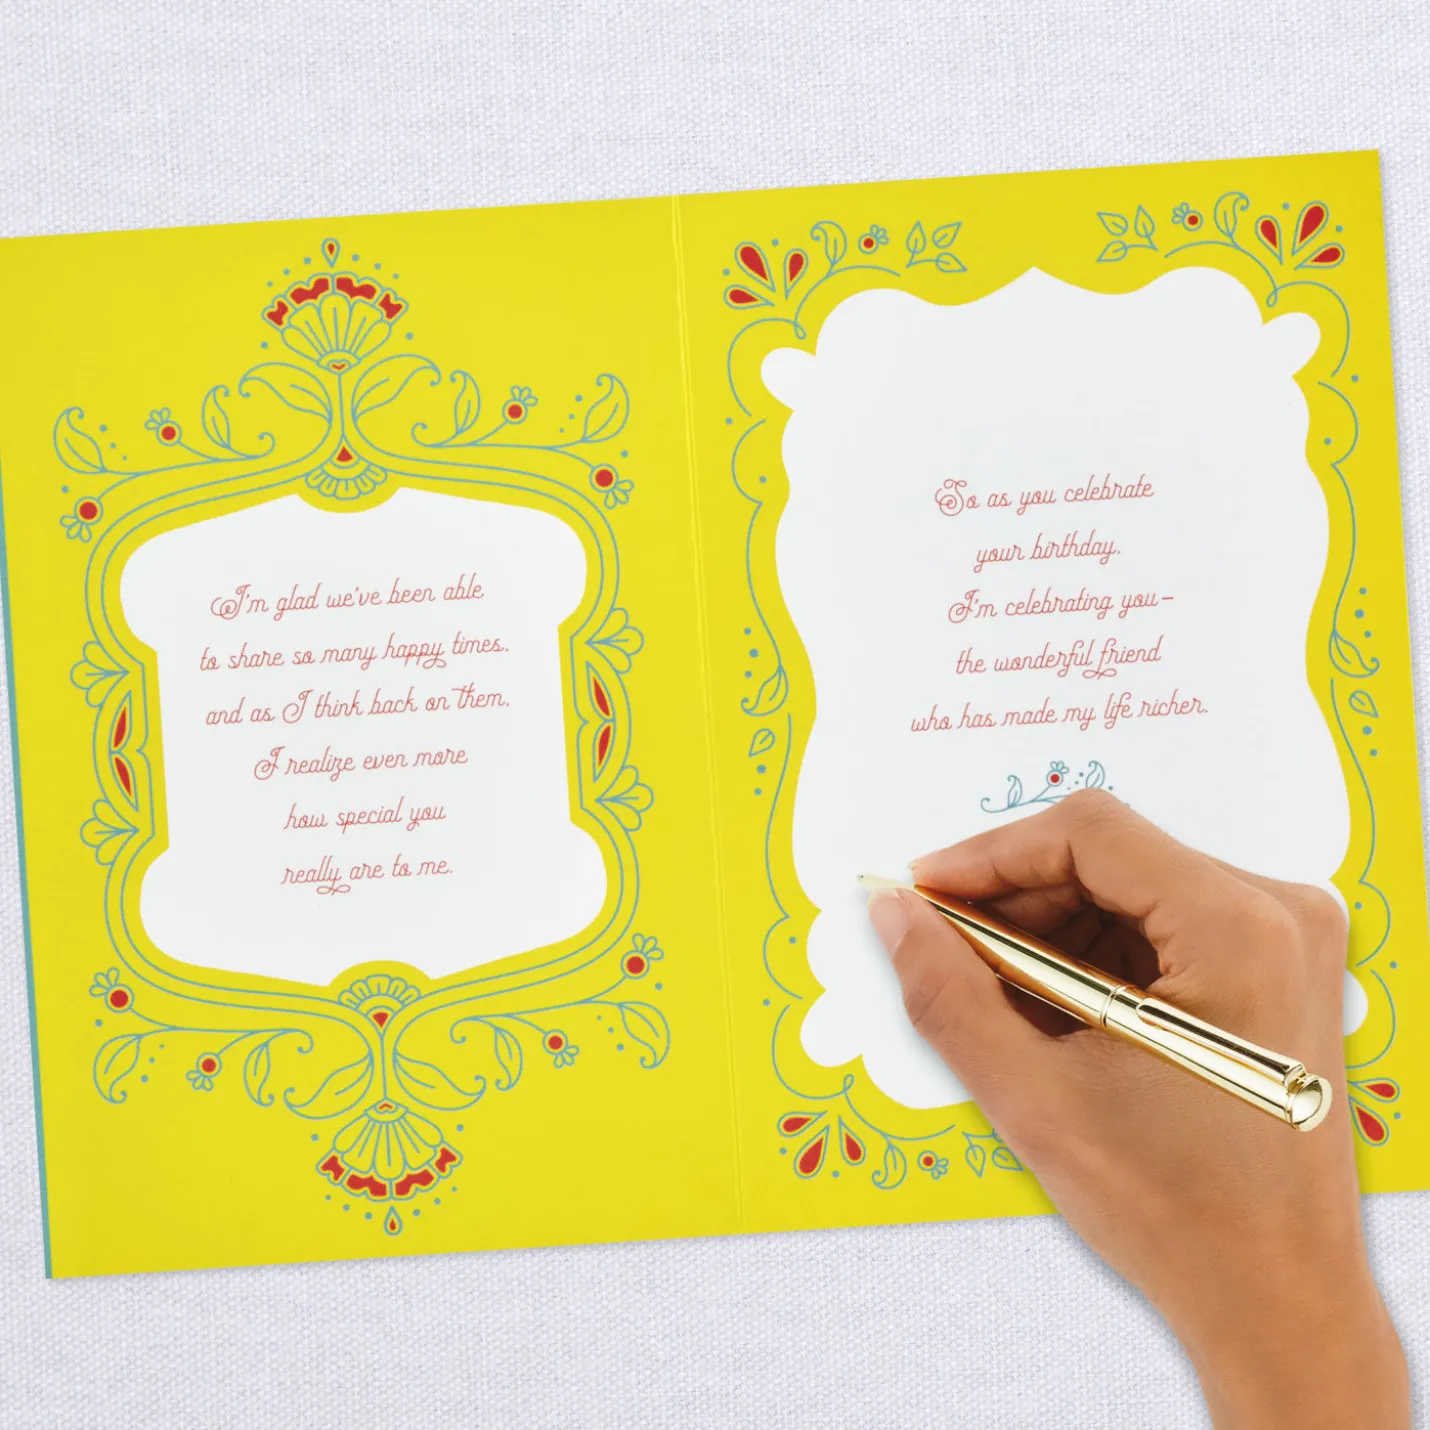 I'm glad we've been able
to share so many happy times,
and as I think back on them,
I realize even more
how special you
really are to me.
So as you celebrate
your birthday,
I'm celebrating you—
the wonderful friend
who has made my life richer.